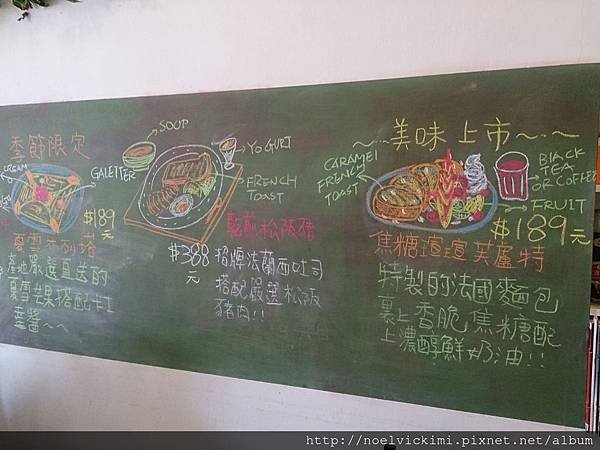 季節限定
CREAM
GALETTER
$189
元
夏雪芒列塔
產地嚴選直送的
夏雪芒果搭配卡士
達醬~~
SOUP
YOGURT
FRENCH
TOAST
$388
元
招牌法蘭西吐司
搭配嚴選松阪
豬肉!!
~~美味上市~~
CARAMEL
FRENCH
TOAST
BLACK
TEA
OR COFFEE
FRUIT
$189元
焦糖瑄瑄芙盧特
特製的法國麵包
裹上香脆焦糖配
上濃醇鮮奶油!!
http://noelvickimi.pixnet.net/album